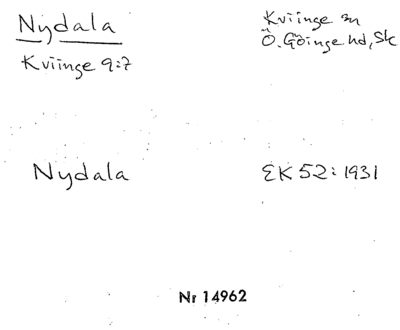 Nydala
Kviinge 9:7
Kviinge sn
Ö. Göinge hd, Sk
Nydala
EK 52:1931
Nr 14962